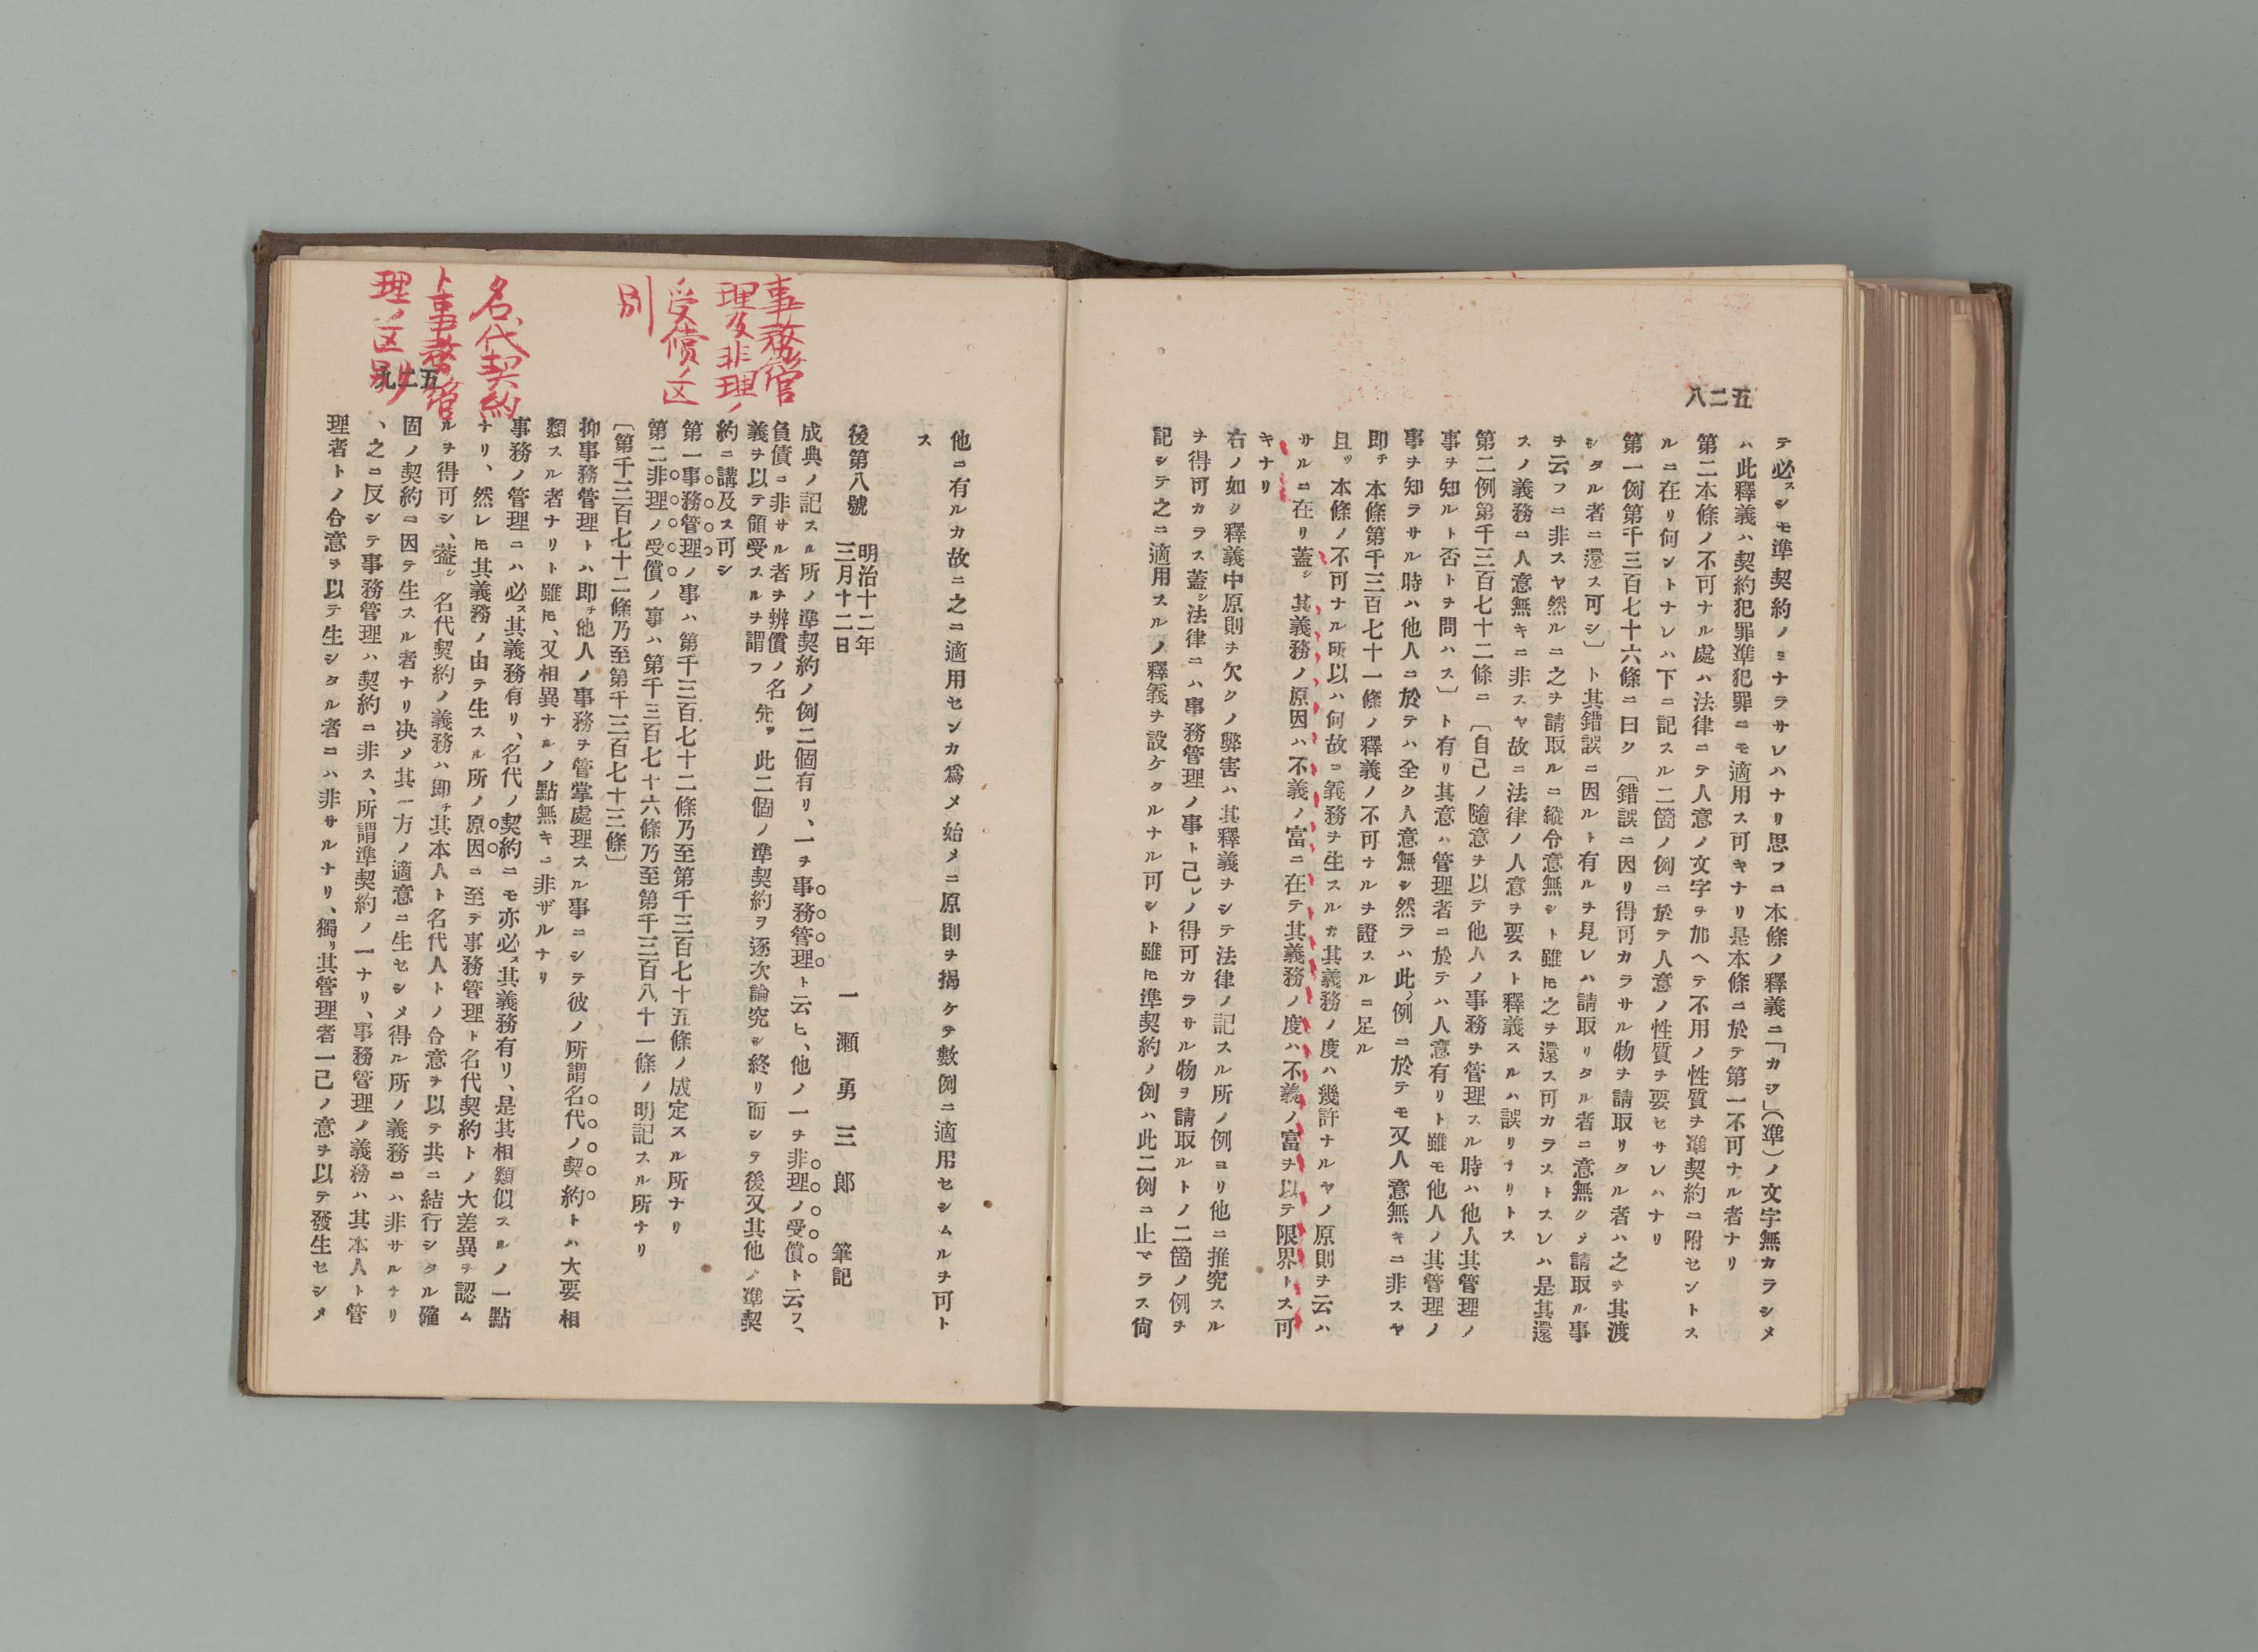 五二八
テ必スシモ準契約ノミナラサレハナリ思フニ本條ノ釋義ニ「カジ」(準)ノ文字無カラシメ
ハ此釋義ハ契約犯罪準犯罪ニモ適用ス可キナリ是本條ニ於テ第一不可ナル者ナリ
第二本條ノ不可ナル處ハ法律ニテ人意ノ文字ヲ加ヘテ不用ノ性質ヲ準契約ニ附セントス
ルニ在リ何ントナレハ下ニ記スル二箇ノ例ニ於テ人意ノ性質ヲ要セサレハナリ
第一例第千三百七十六條ニ曰ク〔錯誤ニ因リ得可カラサル物ヲ請取リタル者ハ之ヲ其渡
シタル者ニ還ス可シ〕ト其錯誤ニ因ルト有ルヲ見レハ請取リタル者ニ意無クシテ請取ル事
ヲ云フニ非スヤ然ルニ之ヲ請取ルニ縱令意無シト雖モ之ヲ還ス可カラストスレハ是其還
スノ義務ニ人意無キニ非スヤ故ニ法律ノ人意ヲ要スト釋義スルハ誤リナリトス
第二例第千三百七十二條ニ〔自己ノ隨意ヲ以テ他人ノ事務ヲ管理スル時ハ他人其管理ノ
事ヲ知ルト否トヲ問ハス〕ト有リ其意ハ管理者ニ於テハ人意有リト雖モ他人ノ其管理ノ
事ヲ知ラサル時ハ他人ニ於テハ全ク人意無シ然ラハ此ノ例ニ於テモ又人意無キニ非スヤ
即チ本條第千三百七十一條ノ釋義ノ不可ナルヲ證スルニ足ル
且ツ本條ノ不可ナル所以ハ何故ニ義務ヲ生スルカ其義務ノ度ハ幾許ナルヤノ原則ヲ云ハ
サルニ在リ蓋シ其義務ノ原因ハ不義ノ富ニ在テ其義務ノ度ハ不義ノ富ヲ以テ限界トス可
キナリ
右ノ如ク釋義中原則ヲ欠クノ弊害ハ其釋義ヲシテ法律ノ記スル所ノ例ヨリ他ニ推究スル
ヲ得可カラス蓋シ法律ニハ事務管理ノ事ト己レノ得可カラサル物ヲ請取ルトノ二箇ノ例ヲ
記シテ之ニ適用スルノ釋義ヲ設ケタルナル可シト雖モ準契約ノ例ハ此二例ニ止マラス尙
他ニ有ルカ故ニ之ニ適用センカ爲メ始メニ原則ヲ揭ケテ數例ニ適用セシムルヲ可ト
ス
後第八號 明治十二年三月十二日 一瀬勇三郎 筆記
成典ノ記スル所ノ準契約ノ例二個有リ、一ヲ事務管理ト云ヒ、他ノ一ヲ非理ノ受償ト云フ、
負債ニ非サル者ヲ辨償ノ名
義ヲ以テ領受スルヲ謂フ 先ツ此二個ノ準契約ヲ逐次論究シ終リ而シテ後又其他ノ準契
約ニ講及ス可シ
第一事務管理ノ事ハ第千三百七十二條乃至第千三百七十五條ノ成定スル所ナリ
第二非理ノ受償ノ事ハ第千三百七十六條乃至第千三百八十一條ノ明記スル所ナリ
〔第千三百七十二條乃至第千三百七十三條〕
抑事務管理トハ即チ他人ノ事務ヲ管掌處理スル事ニシテ彼ノ所謂名代ノ契約トハ大要相
類スル者ナリト雖モ、又相異ナルノ點無キニ非ザルナリ
事務ノ管理ニハ必ス其義務有リ、名代ノ契約ニモ亦必ス其義務有リ、是其相類似スルノ一點
ナリ、然レモ其義務ノ由テ生スル所ノ原因ニ至テ事務管理ト名代契約トノ大差異ヲ認ム
ルヲ得可シ、蓋シ名代契約ノ義務ハ即チ其本人ト名代人トノ合意ヲ以テ共ニ結行シタル確
固ノ契約ニ因テ生スル者ナリ決メ其一方ノ適意ニ生セシメ得ル所ノ義務ニハ非サルナリ
、之ニ反シテ事務管理ハ契約ニ非ス、所謂準契約ノ一ナリ、事務管理ノ義務ハ其本人ト管
理者トノ合意ヲ以テ生シタル者ニハ非サルナリ、獨リ其管理者一己ノ意ヲ以テ發生セシメ
五二九
事務管
理及非理ノ
受償ノ区
別
名代契約
ト事務管
理ノ区別